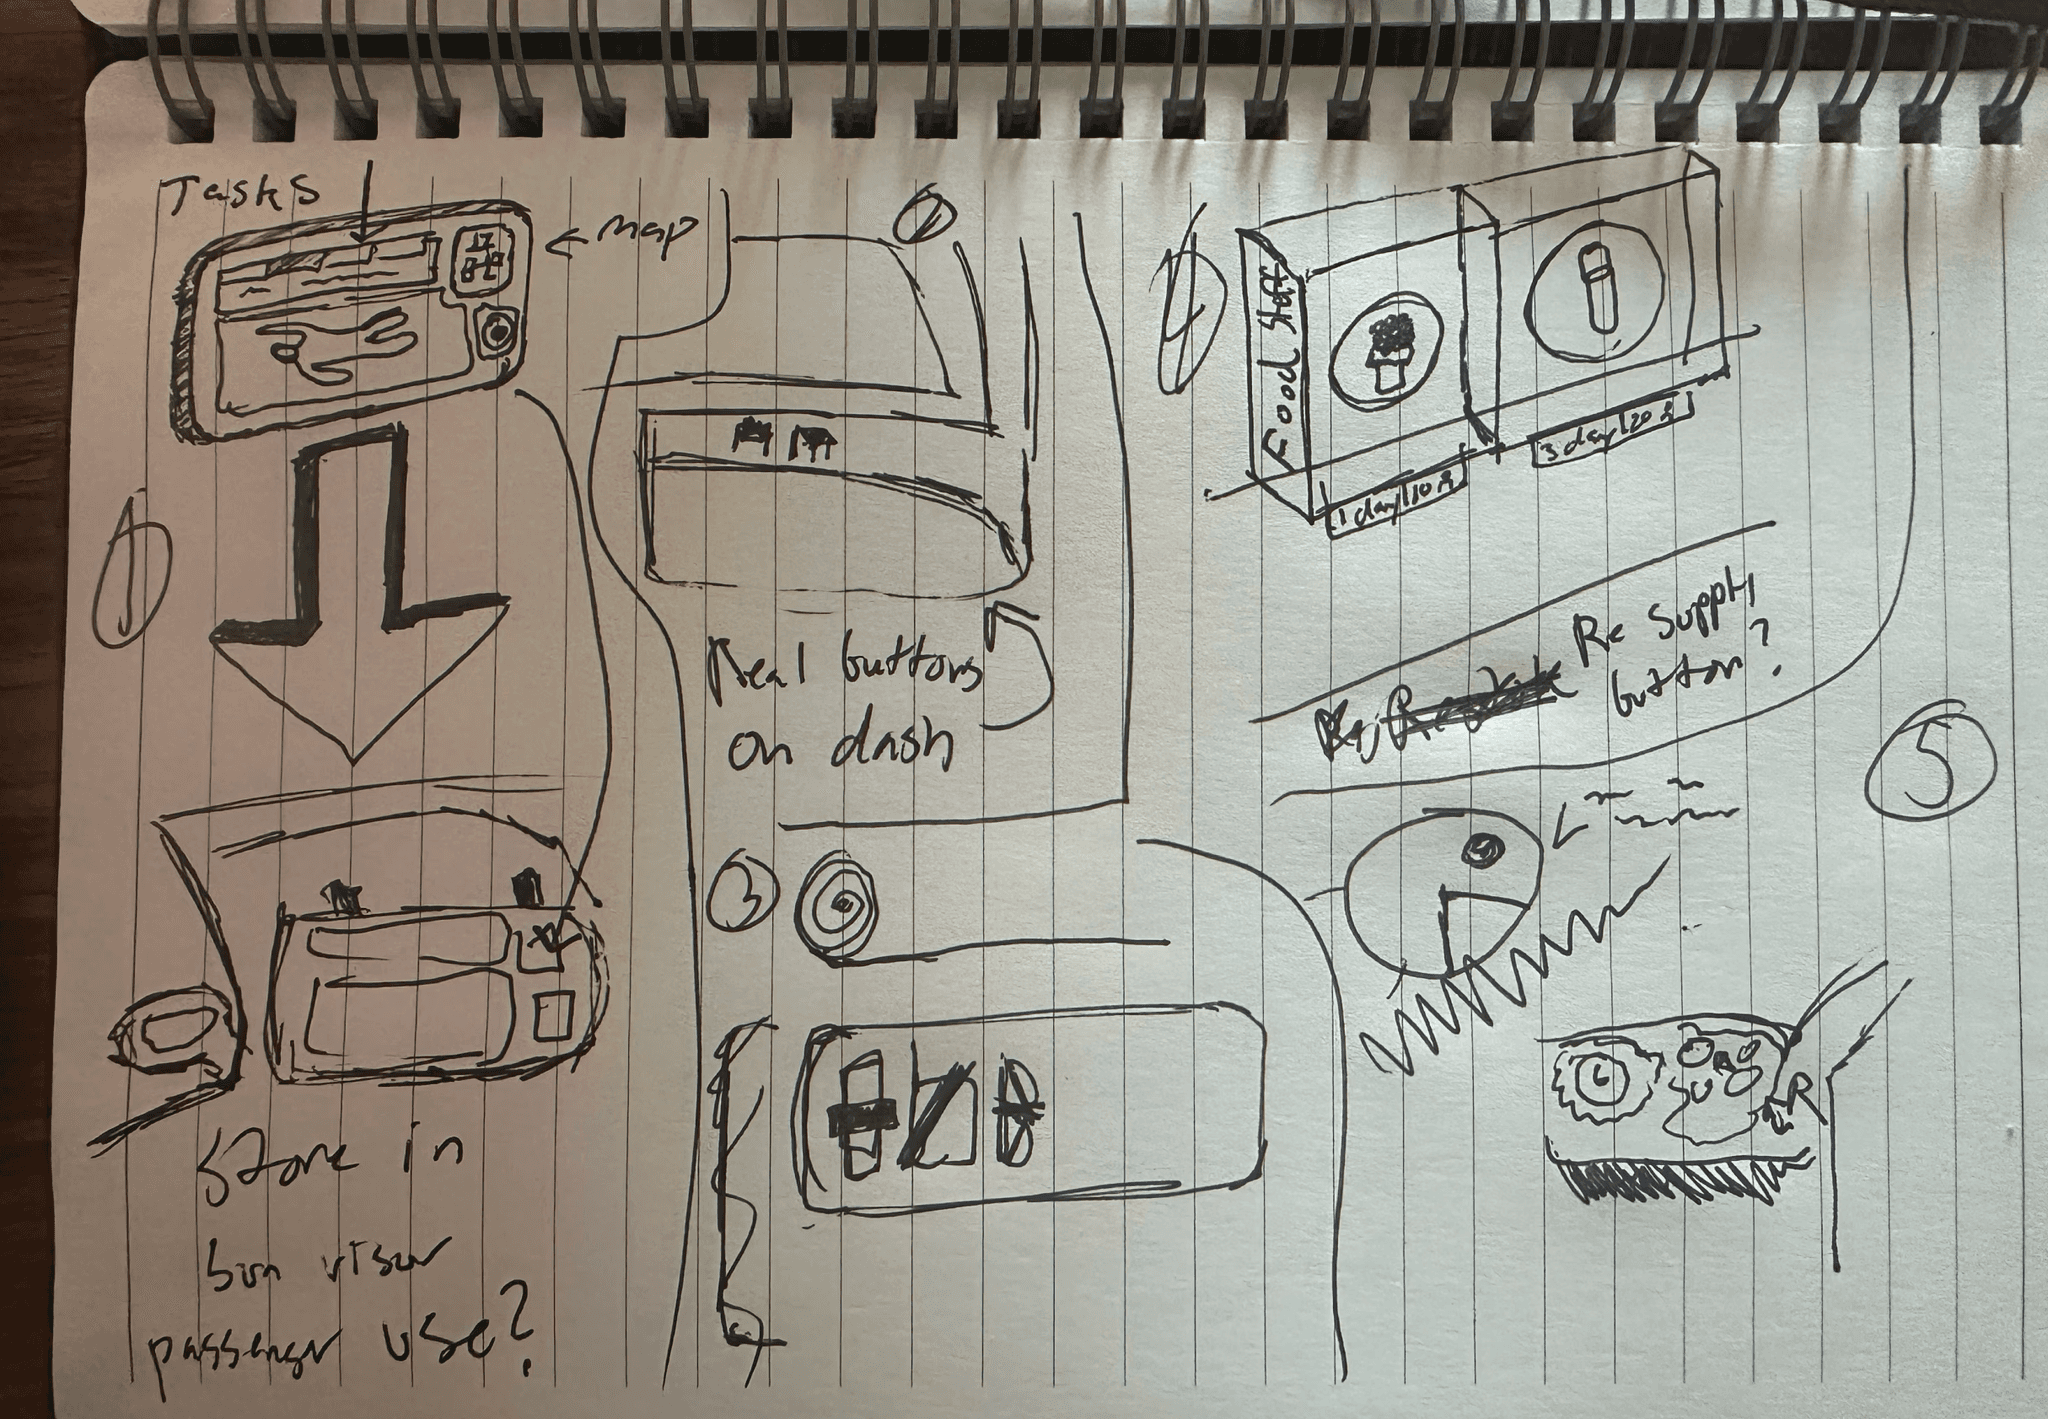 Tasks
← map
1
Store in
Sun visor
passenger use?
2
Real buttons
on dash
3
4
Food Stuff
1 day/10
3 day/20
Re supply
button?
5